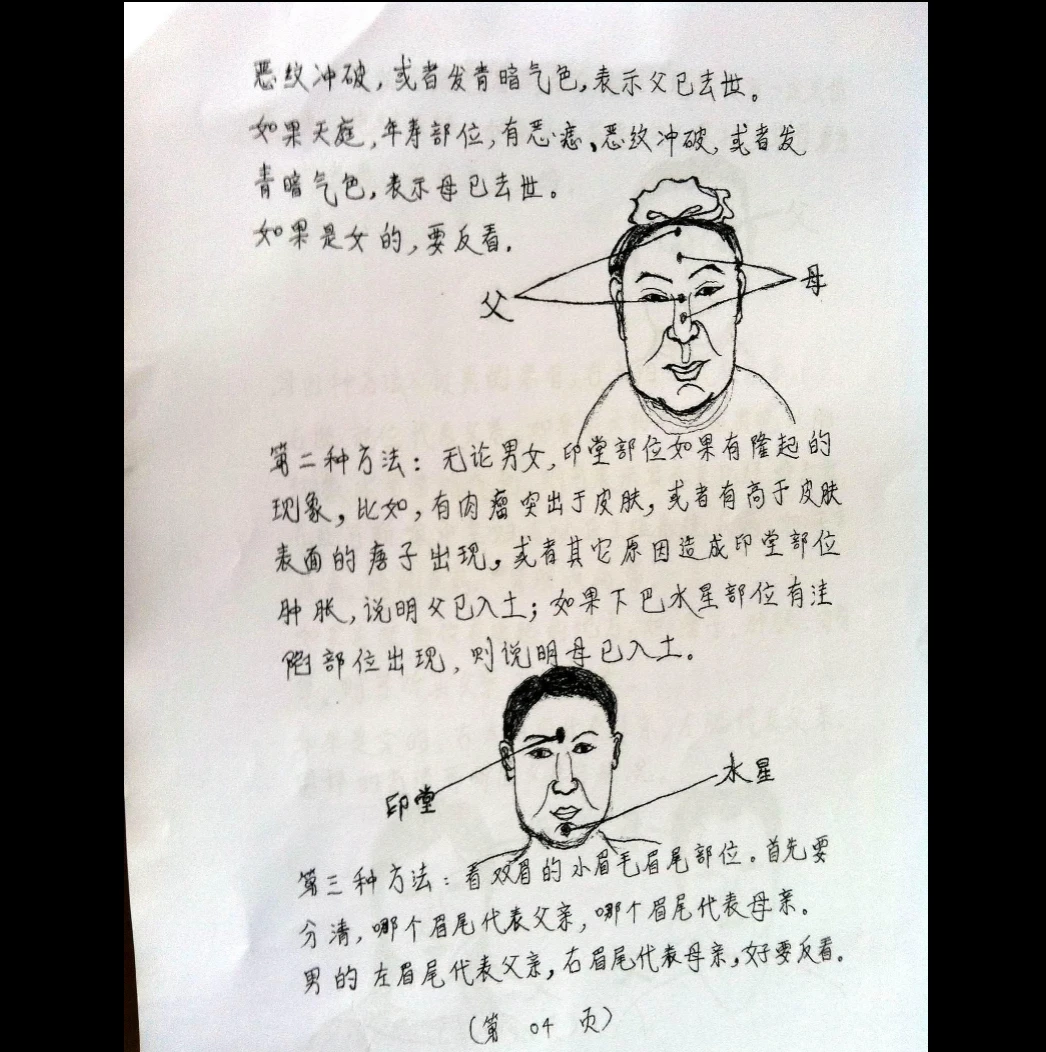 恶纹冲破,或者发青暗气色,表示父已去世。
如果天庭,年寿部位,有恶痣,恶纹冲破,或者发
青暗气色,表示母已去世。
如果是女的,要反看.
父
母
第二种方法:无论男女,印堂部位如果有隆起的
现象,比如,有肉瘤突出于皮肤,或者有高于皮肤
表面的痦子出现,或者其它原因造成印堂部位
肿胀,说明父已入土;如果下巴水星部位有洼
陷部位出现,则说明母已入土。
印堂
水星
第三种方法:看双眉的水眉毛眉尾部位。首先要
分清,哪个眉尾代表父亲,哪个眉尾代表母亲。
男的左眉尾代表父亲,右眉尾代表母亲,好要反看。
(第 04 页)